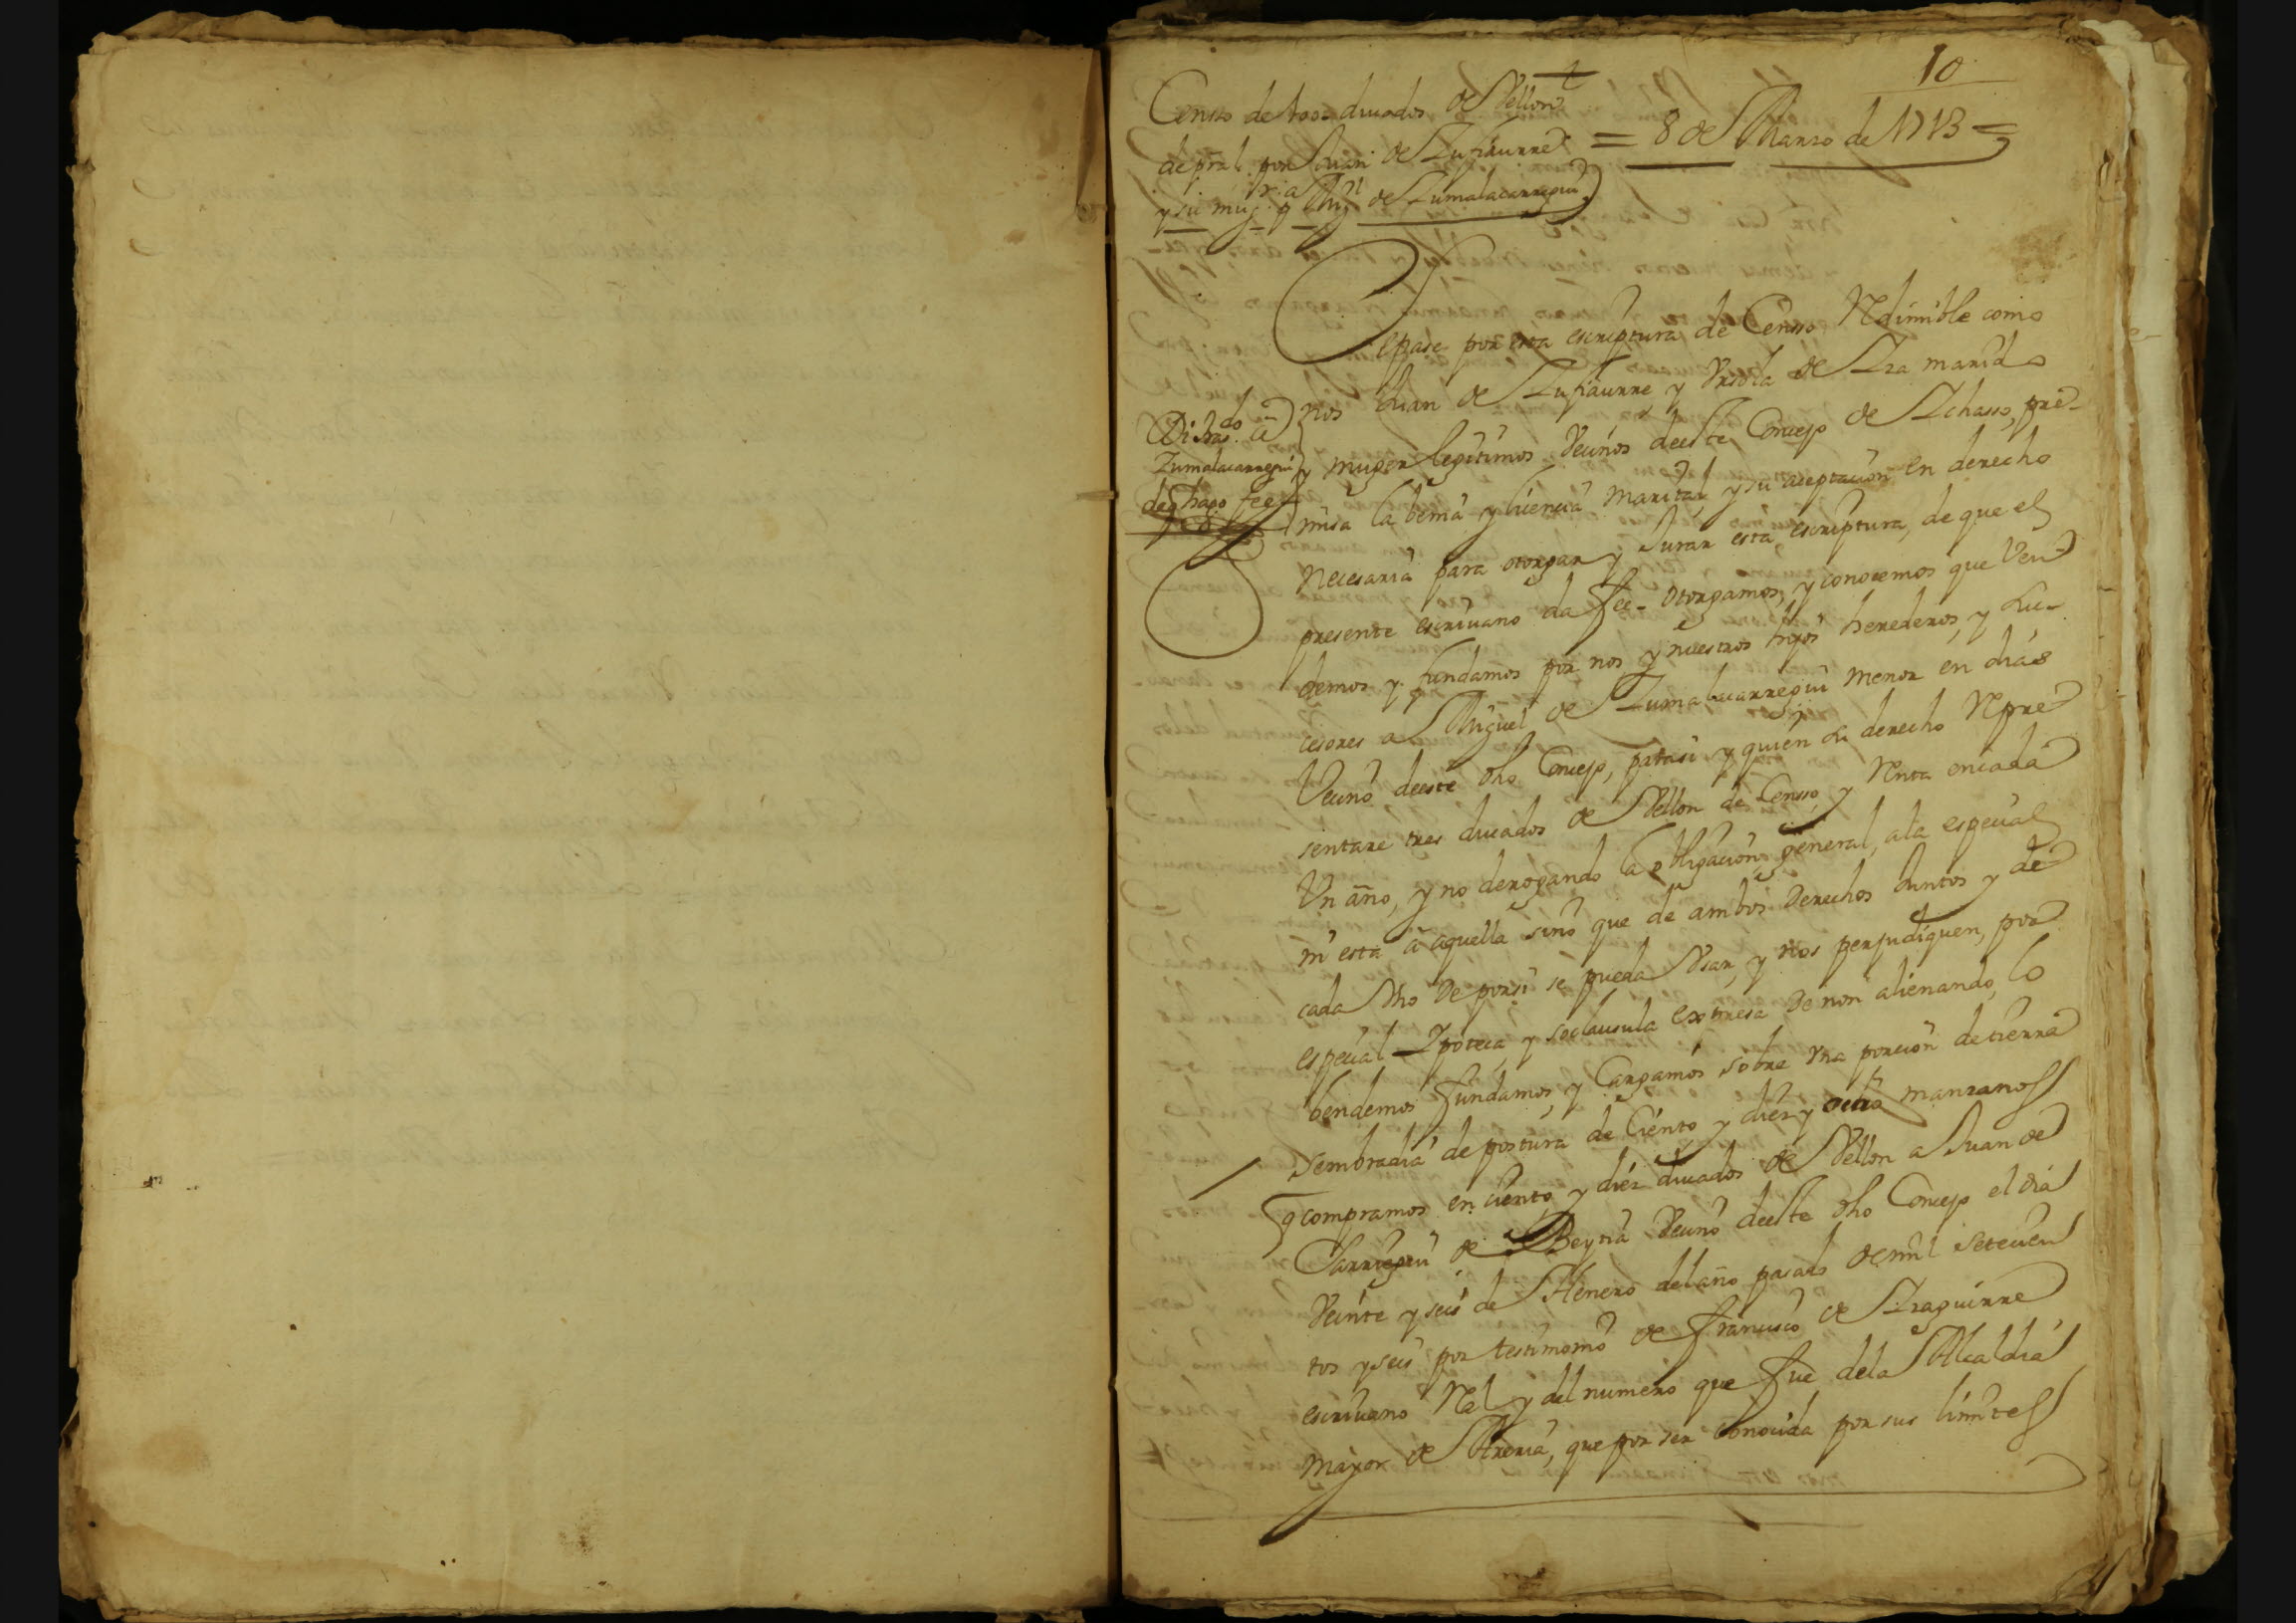 10
Censso de 100 ducados de Vellon
de pral. por Juan de Zufiaurre
y su mugr. a Migl de Zumalacarregui
= 8 de Marzo de 1713 =
Sepase por esta escriptura de Censso Redimible como
nos Juan de Zufiaurre y Ursola de Iza marido
y muger legitimos Vecinos deeste Concejo de Ichasso, pre-
misa la benia y licencia Marital y su aceptacion en derecho
necesaria para otorgar y Jurar esta escriptura, de que el
presente escrivano da fee - otorgamos, y conocemos que Ven
demos y fundamos por nos y nuestros hijos herederos, y su-
cesores a Miguel de Zumalacarregui menor en dias
Vecino deeste dho Concejo, parasi y quien su derecho Repre
sentare tres ducados de Vellon de Censso, y Renta encada
Un año, y no derogando la obligacion general, ala especial
ni esta a aquella sino que de ambos Derechos Juntos y de
cada Uno de porsi se pueda Usar, y nos perjudiquen, por
especial Ipoteca, y so clausula expresa de non alienando, lo
bendemos fundamos, y Cargamos sobre Una porcion de tierra
sembradia de postura de Ciento y diez y ocho manzanos
q compramos en ciento y diez ducados de Vellon a Juan de
Sarriegui de Beytia Vecino deeste dho Concejo el dia
Veinte y seis de Henero del año pasado de mil setecien
tos y seis por testimonio de francisco de Izaguirre
escrivano Rel y del numero que fue dela Alcaldia
mayor de Areria, que por ser Conocida por sus limites
Di tras.do a
Zumalacarregui
deq hago fee